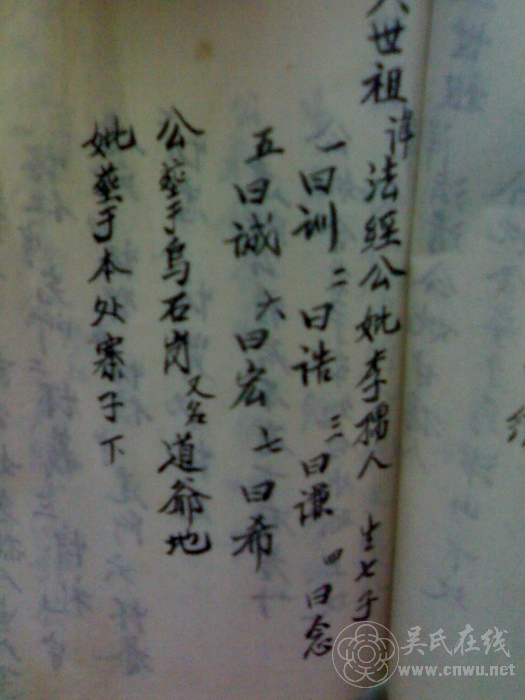 世祖諱法經公妣李孺人 生七子
一曰訓 二曰誥 三曰謙 四曰念
五曰誠 六曰宏 七曰希
公葬于烏石岗又名道爺地
妣葬于本处寨子下
吴氏在线
www.cnwu.net